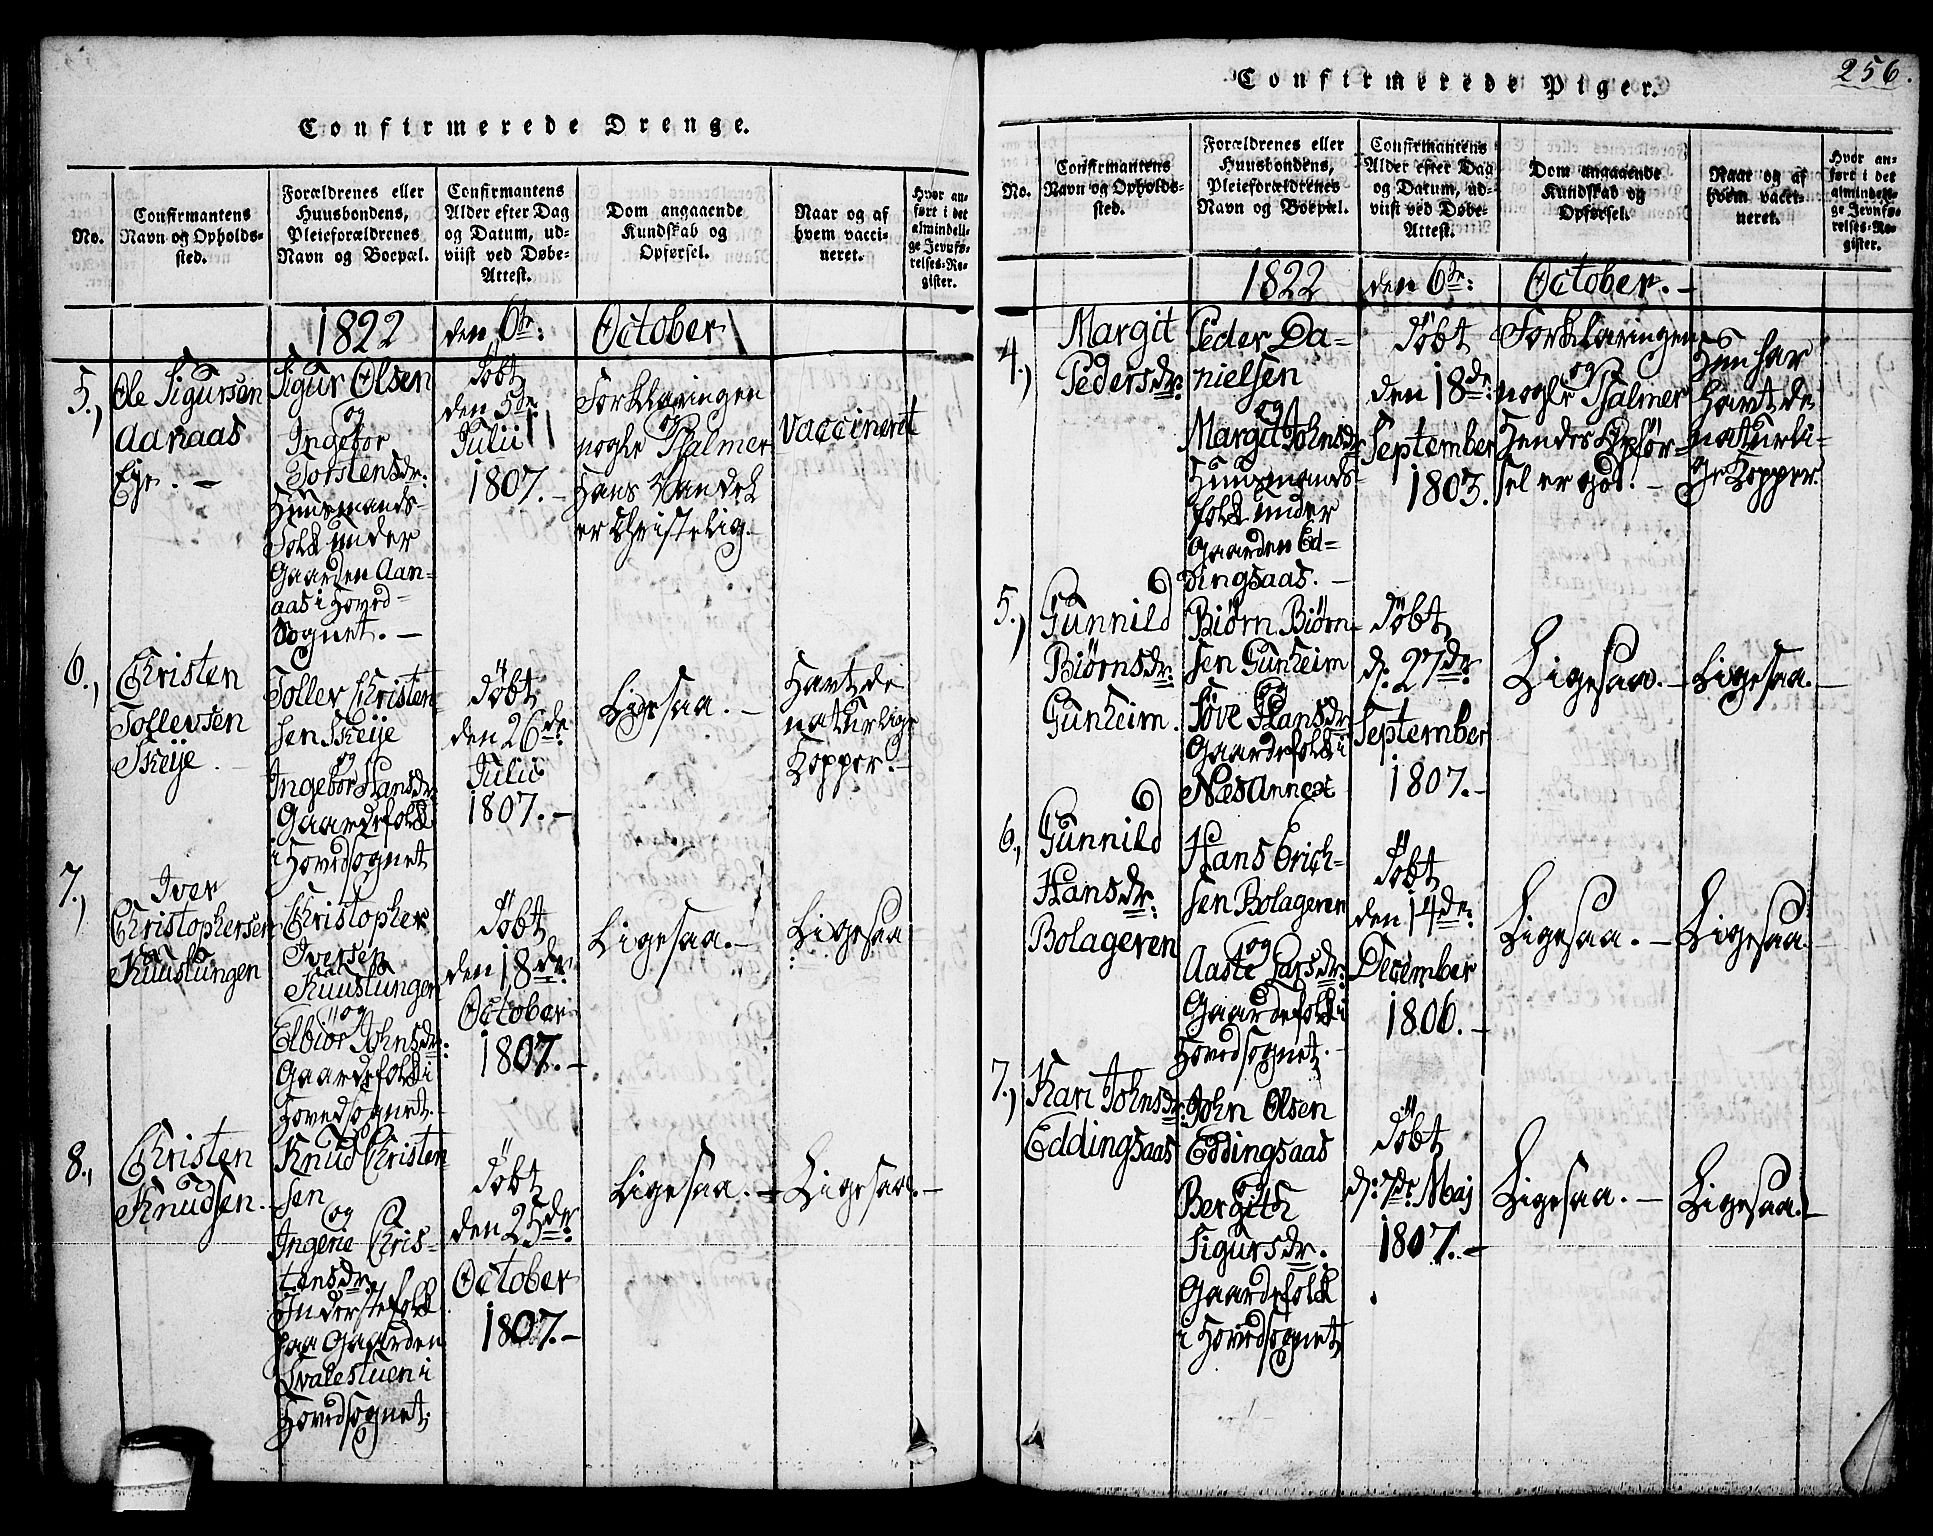 Confirmerede Drenge.
No.
Confirmantens
Navn og Opholds-
sted.
Forældrenes eller
Huusbondens,
Pleieforældrenes
Navn og Boepæl.
Confirmantens
Alder efter Dag
og Datum, ud-
viist ved Døbe-
Attest.
Dom angaaende
Kundskab og
Opførsel.
Naar og af
hvem vacci-
neret.
Hvor an-
ført i det
almindeli-
ge Jevnfø-
relses-Re-
gister.
1822 den 6te: October
5.,
Ole Sigursen
Aanaas
Eje. -
Sigur Olsen
og
Ingebor
Torstensdr:
Huusmands-
folk under
Gaarden Aan-
aas i Hoved-
Sognet. -
Døbt
den 5te
Julii
1807. -
Forklaringen
og
nogle Psalmer
Hans Vandel
er Christelig. -
Vaccineret
6.,
Christen
Tollevsen
Skeije. -
Tollev Christen-
sen Skeije
og
Ingebor Hansdr:
Gaardefolk
i Hovedsognet
Døbt
den 26de
Julii
1807. -
Ligesaa. -
Havt de
naturlige
Kopper. -
7.,
Iver
Christophersen
Kuuslungen
Christopher
Iversen
Kuuslungen
og
Elbiør Johnsdr:
Gaardefolk i
Hovedsognet. -
Døbt
den 18de:
October
1807. -
Ligesaa. -
Ligesaa
8.,
Christen
Knudsen. -
Knud Christen-
sen
og
Ingerie Chris-
tensdr.
Inderstefolk
paa Gaarden
Svalestuen i
Hovedsognet.
Døbt
den 25de:
October
1807. -
Ligesaa. -
Ligesaa. -
256.
Confirmerede Piger.
No.
Confirmantens
Navn og Opholds-
sted.
Forældrenes eller
Huusbondens,
Pleieforældrenes
Navn og Boepæl.
Confirmantens
Alder efter Dag
og Datum, ud-
viist ved Døbe-
Attest.
Dom angaaende
Kundskab og
Opførsel.
Naar og af
hvem vacci-
neret.
Hvor an-
ført i det
almindeli-
ge Jevnfø-
relses-Re-
gister.
1822 den 6te: October. -
4.,
Margit
Pedersdr:
Peder Da-
nielsen
og
Margit Johnsdr
Huusmands-
folk under
Gaarden Ed-
dingsaas. -
Døbt
den 18de:
September
1803.
Forklaringen
og
nogle Psalmer
Hendes Opfør-
sel er god. -
Hun har
havt de
naturli-
ge Kopper.
5.,
Gunnild
Biørnsdr:
Gunheim.
Biørn Biørn-
sen Gunheim
og
Tove Hansdr
Gaardefolk i
Næs Annex
Døbt
d: 27de:
September
1807. -
Ligesaa. -
Ligesaa. -
6.,
Gunnild
Hansdr:
Bolageren
Hans Erich-
sen Bolageren
og
Aaste Larsdr:
Gaardefolk i
Hovedsognet. -
Døbt
den 14de:
December
1806. -
Ligesaa. -
Ligesaa. -
7.,
Kari Johnsdr:
Eddingsaas
John Olsen
Eddingsaas
og
Bergith
Sigursdr.
Gaardefolk
i Hovedsognet
Døbt
d: 7de: Maj
1807. -
Ligesaa. -
Ligesaa. -